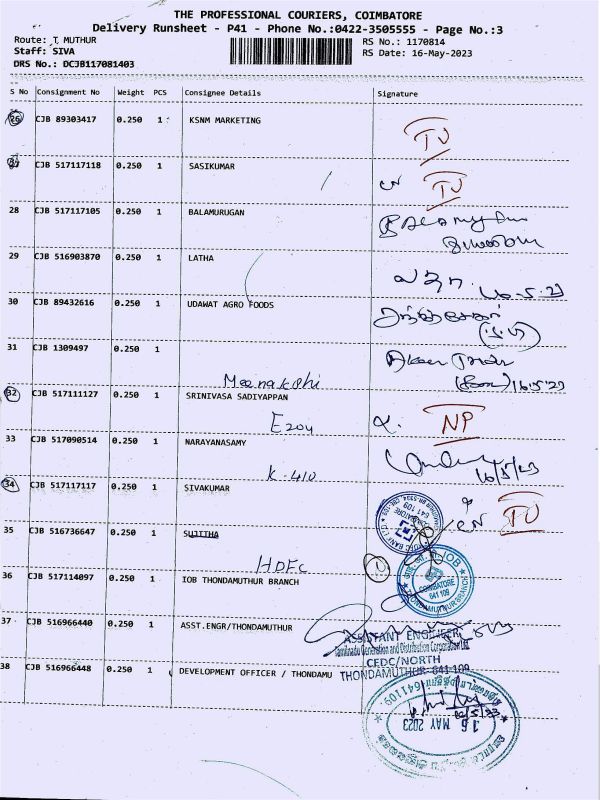 THE PROFESSIONAL COURIERS, COIMBATORE
Delivery Runsheet - P41 - Phone No.:0422-3505555 - Page No.:3
Route: T, MUTHUR
RS No.: 1170814
Staff: SIVA
RS Date: 16-May-2023
DRS No.: DCJB117081403
S No Consignment No Weight PCS Consignee Details Signature
26 CJB 89303417 0.250 1 KSNM MARKETING
TJ
27 CJB 517117118 0.250 1 SASIKUMAR
TJ
28 CJB 517117105 0.250 1 BALAMURUGAN
29 CJB 516903870 0.250 1 LATHA
16.5.23
30 CJB 89432616 0.250 1 UDAWAT AGRO FOODS
31 CJB 1309497 0.250 1
Meenakshi
16/5/23
32 CJB 517111127 0.250 1 SRINIVASA SADIYAPPAN
E204
NP
33 CJB 517090514 0.250 1 NARAYANASAMY
K-410
16/5/23
34 CJB 517117117 0.250 1 SIVAKUMAR
TJ
35 CJB 516736647 0.250 1 SUJITHA
HDFC
641 109
36 CJB 517114097 0.250 1 IOB THONDAMUTHUR BRANCH
IOB
COIMBATORE
641 109
THONDAMUTHUR BRANCH
37 CJB 516966440 0.250 1 ASST.ENGR/THONDAMUTHUR
ASSISTANT ENGINEER
Tamilnadu Generation and Distribution Corporation Ltd.
CEDC/NORTH
THONDAMUTHUR-641 109
38 CJB 516966448 0.250 1 DEVELOPMENT OFFICER / THONDAMU
641109
16/5/23
16 MAY 2023